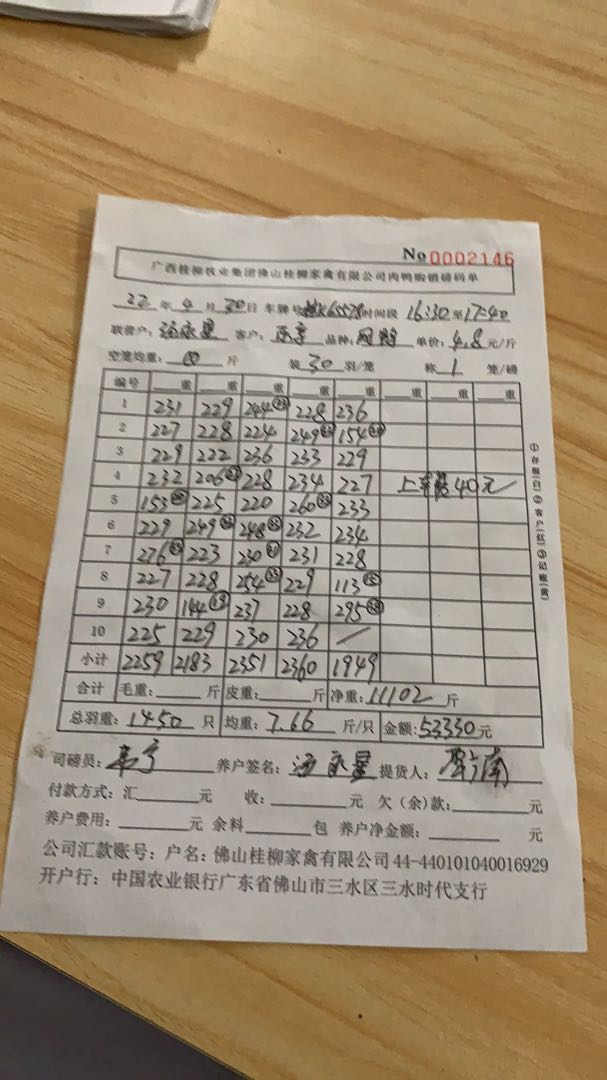 No 0002146
广西桂柳农业集团佛山桂柳家禽有限公司肉鸭购销磅码单
22年4月30日 车牌号 65578 时间段 16:30至17:40
联营户: 汤永星 客户: 品种: 单价: 4.8元/斤
空笼均重: 斤 装30羽/笼 称1笼/磅
编号 重 重 重 重 重 重 重 重
1 231 229 244 228 236
2 227 228 224 249 154
3 229 222 236 233 229
4 232 206 228 234 227 上车 40元
5 153 225 220 260 233
6 229 249 248 232 234
7 276 223 230 231 228
8 227 228 254 229 113
9 230 144 237 228 295
10 225 229 230 236 /
小计 2259 2183 2351 2360 1949
合计 毛重: 斤 皮重: 斤 净重: 11102斤
总羽重: 1450只 均重: 7.66斤/只 金额: 53330元
司磅员: 养户签名: 汤永星 提货人:
付款方式: 汇 元 收: 元 欠(余)款: 元
养户费用: 元 余料 包 养户净金额: 元
公司汇款账号: 户名: 佛山桂柳家禽有限公司 44-440101040016929
开户行: 中国农业银行广东省佛山市三水区三水时代支行
①存根(白)②客户(红)③记账(黄)